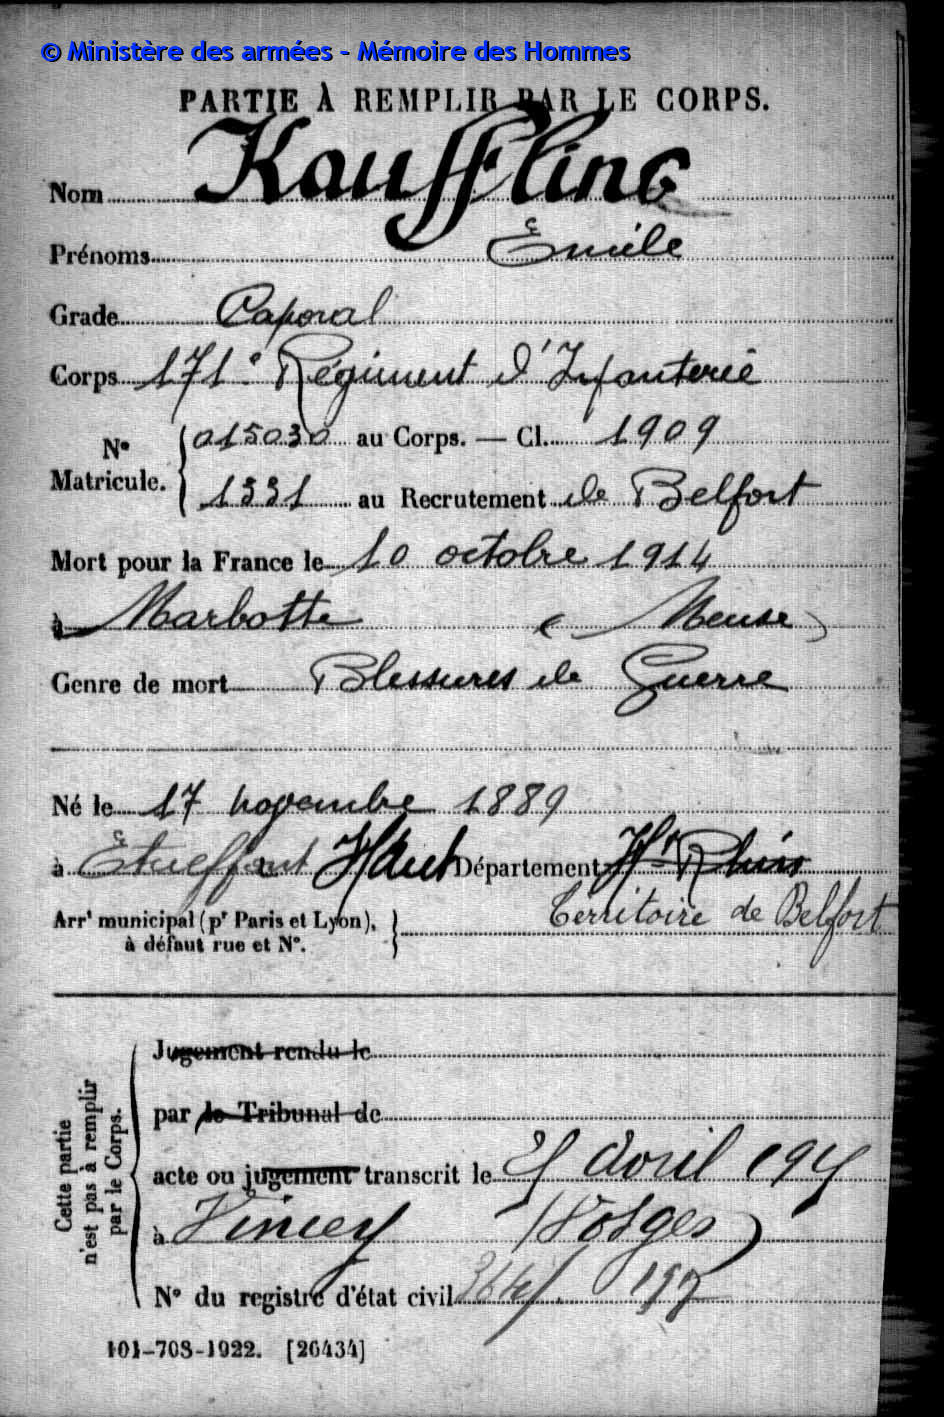 © Ministère des armées - Mémoire des Hommes
PARTIE À REMPLIR PAR LE CORPS.
Nom Kauffling
Prénoms Emile
Grade Caporal
Corps 171e Régiment d'Infanterie
N° Matricule. 015030 au Corps. — Cl. 1909
1331 au Recrutement de Belfort
Mort pour la France le 10 octobre 1914
à Marbotte (Meuse)
Genre de mort Blessures de Guerre
Né le 17 novembre 1889
à Etueffont Haut Département Ht Rhin
Territoire de Belfort
Arrt municipal (pr Paris et Lyon),
à défaut rue et N°.
Cette partie
n'est pas à remplir
par le Corps.
Jugement rendu le
par le Tribunal de
acte ou jugement transcrit le avril
à Vincey (Vosges)
N° du registre d'état civil
101-708-1922. [26434]